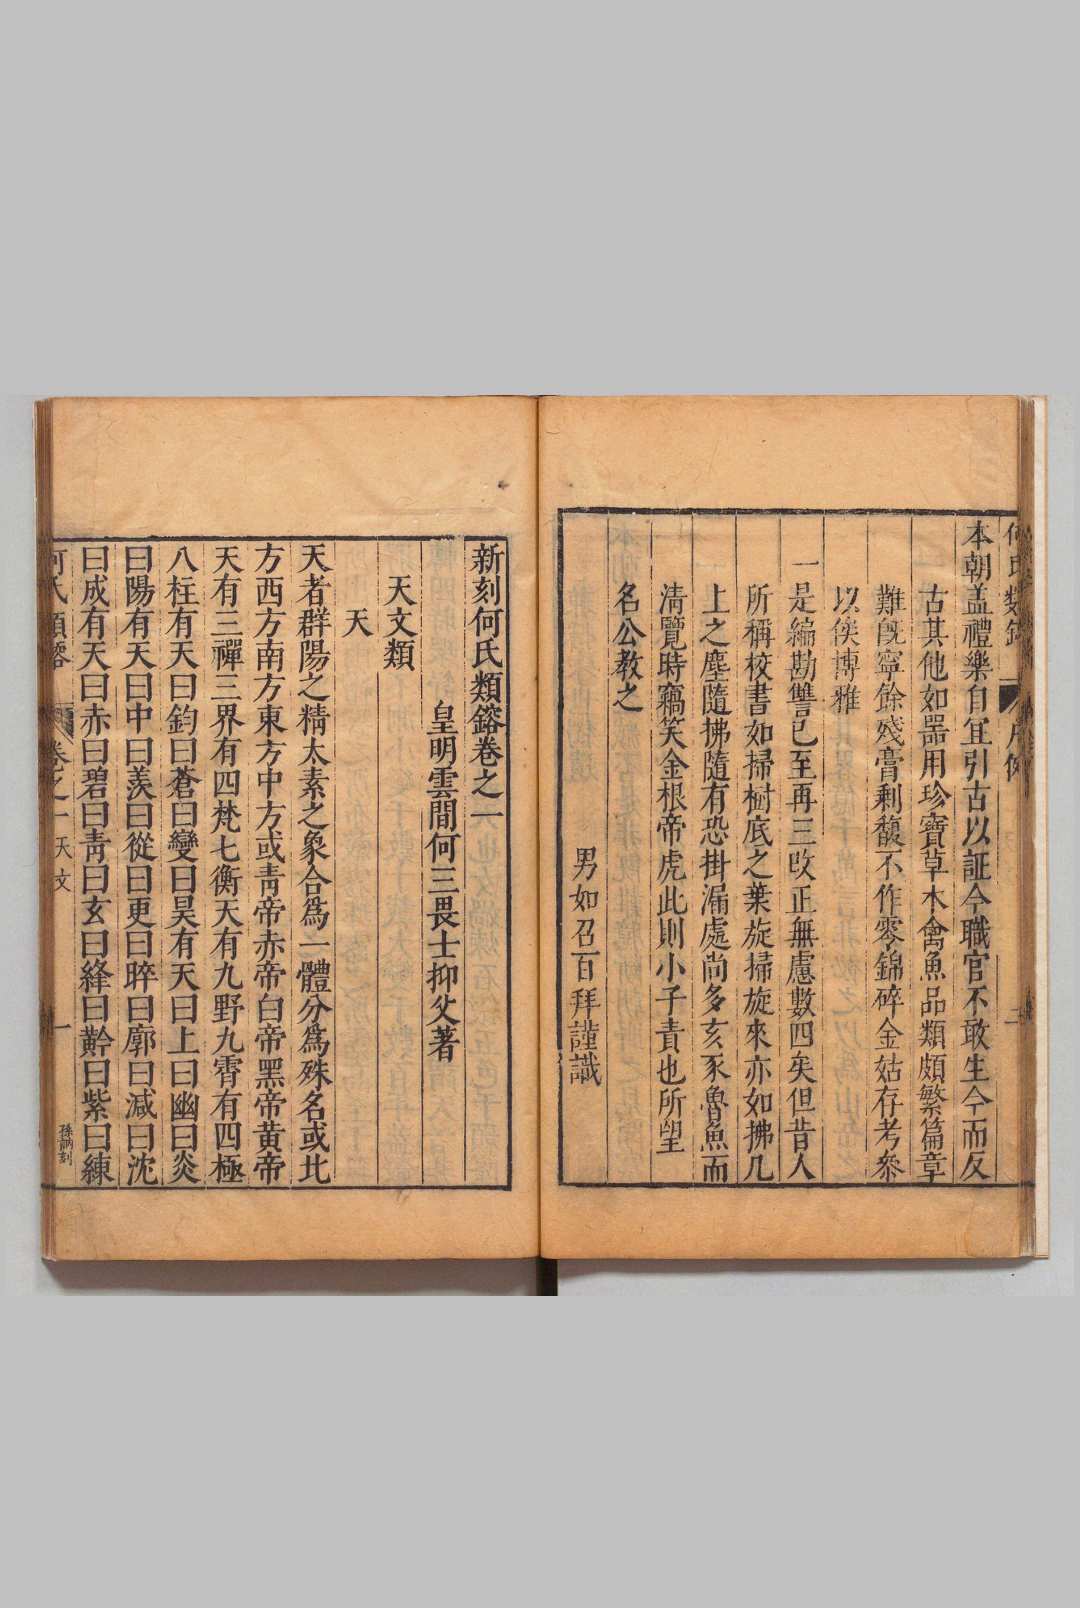 本朝盖禮樂自宜引古以証今職官不敢生今而反
古其他如器用珍寶草木禽魚品類頗繁篇章
難旣寧餘殘膏剩馥不作零錦碎金姑存考叅
以俟博雅
一是編勘讐已至再三改正無慮數四矣但昔人
所稱校書如掃樹底之葉旋掃旋來亦如拂几
上之塵隨拂隨有恐掛漏處尚多亥豕魯魚而
清覽時竊笑金根帝虎此則小子責也所望
名公教之
男如召百拜謹識
新刻何氏類鎔卷之一
皇明雲間何三畏士抑父著
天文類
天
天者群陽之精太素之象合爲一體分爲殊名或北
方西方南方東方中方或靑帝赤帝白帝黑帝黃帝
天有三禪三界有四梵七衡天有九野九霄有四極
八柱有天曰鈞曰蒼曰變曰昊有天曰上曰幽曰炎
曰陽有天曰中曰羨曰從曰更曰晬曰廓曰减曰沈
曰成有天曰赤曰碧曰靑曰玄曰絳曰黅曰紫曰練
何氏類鎔 卷之一 天文 一
孫訥刻